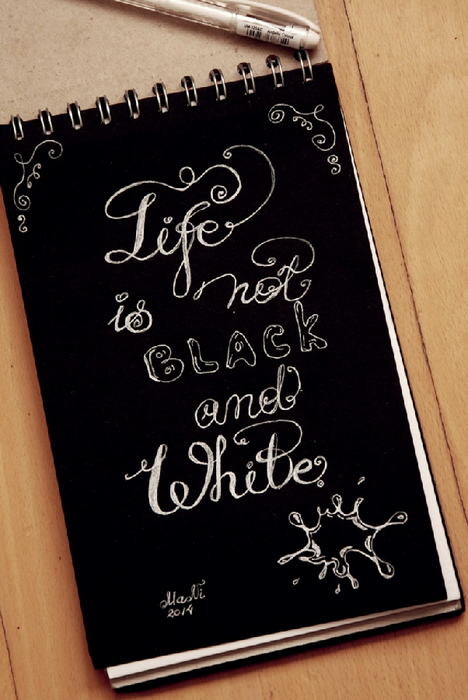 Life
not
is
BLACK
and
White
MasVi
2014